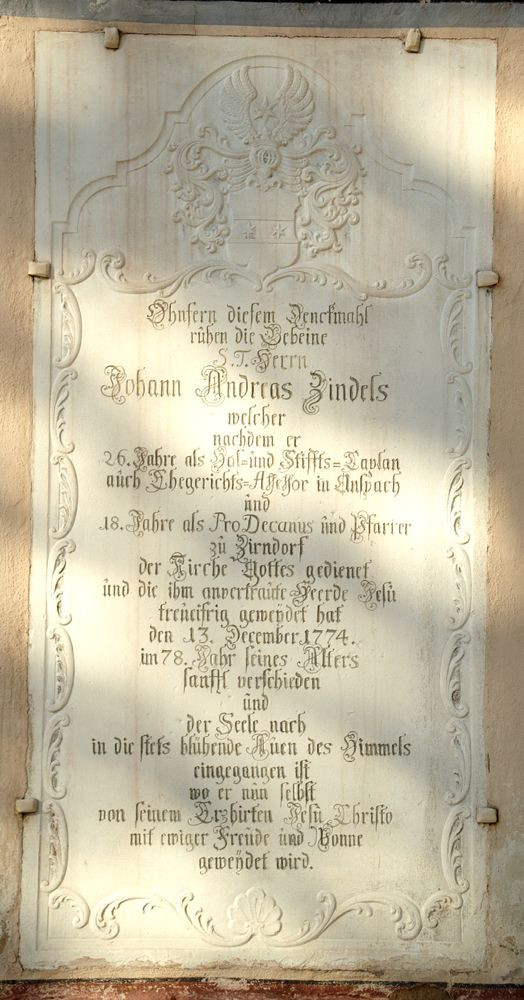 Ohnfern diesem Denckmahl
rühen die Gebeine
S.T. Herrn
Johann Andreas Zindels
welcher
nachdem er
26. Jahre als Hof= und Stiffts=Caplan
aüch Ehegerichts=Assessor in Anspach
ünd
18. Jahre als ProDecanus ünd Pfarrer
zü Zirndorf
der Kirche Gottes gedienet
ünd die ihm anvertraüte Heerde Jesü
treüeifrig geweydet hat
den 13. December 1774.
im 78. Jahr seines Alters
sanfft verschieden
ünd
der Seele nach
in die stets blühende Aüen des Himmels
eingegangen ist
wo er nün selbst
von seinem Erzhirten Jesü Christo
mit ewiger Freüde ünd Wonne
geweydet wird.